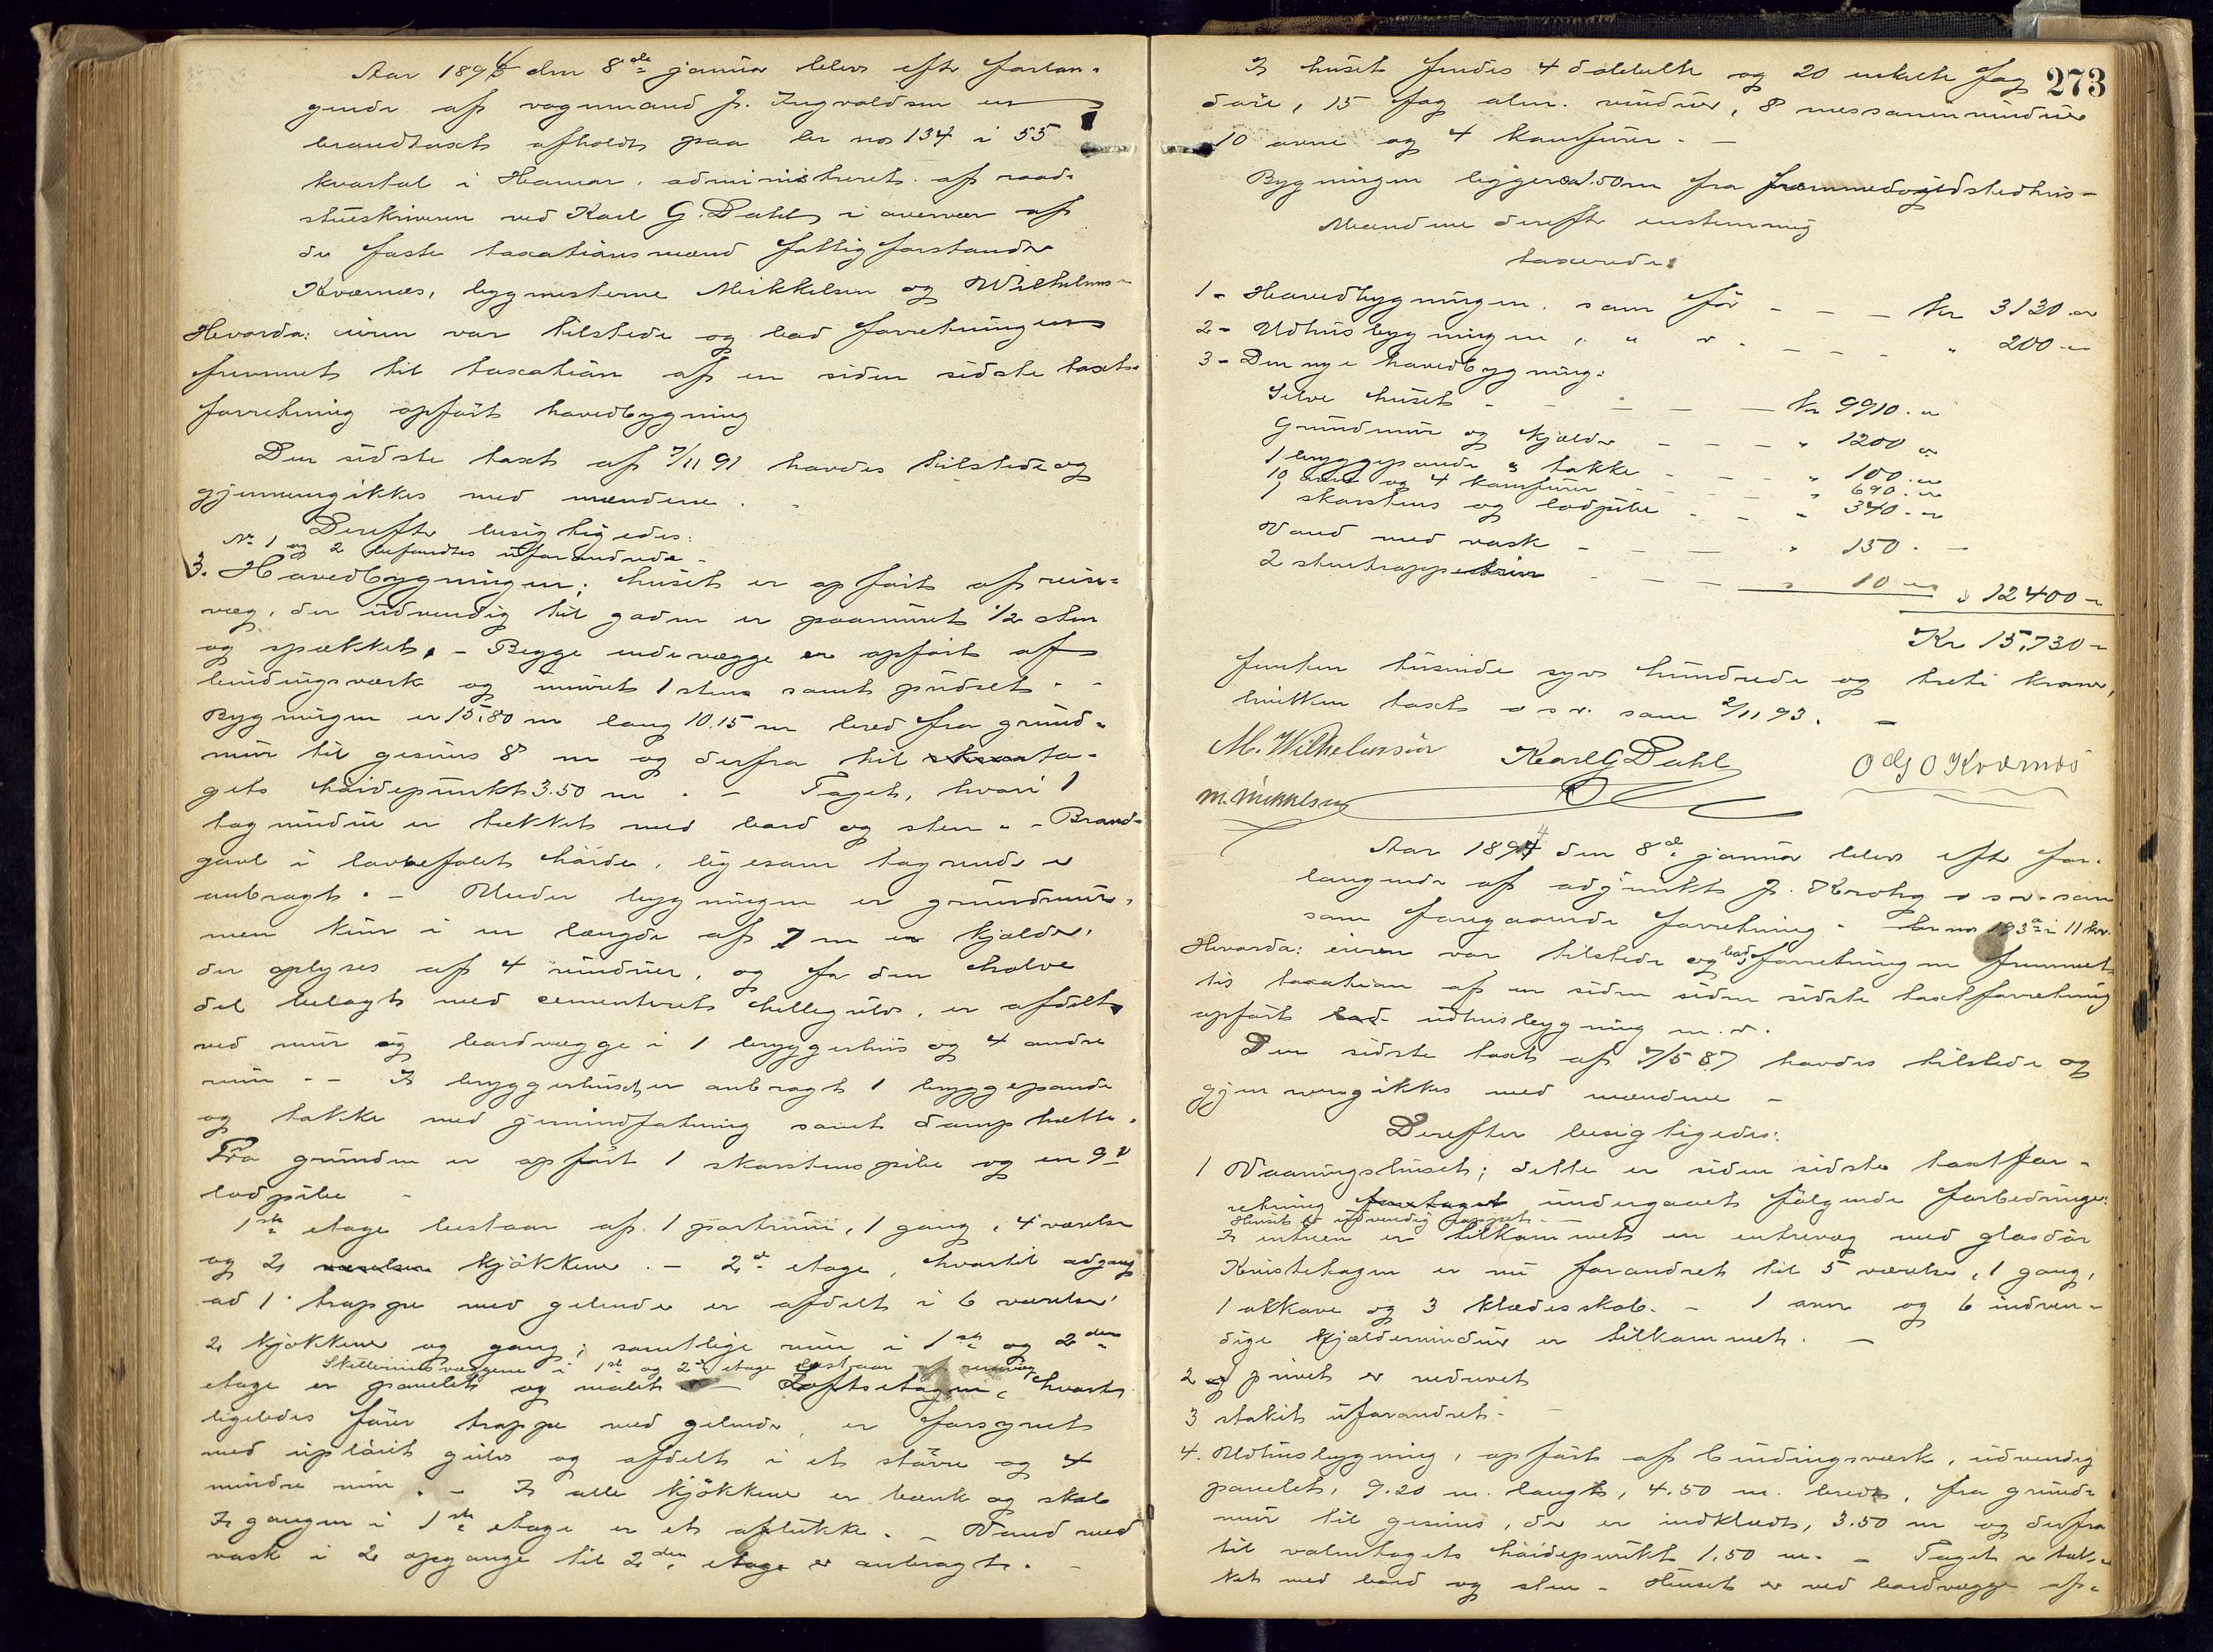 Aar 1894 den 8de januar blev efter forlan-
gende af vognmand J. Ingvaldsen en
brandtaxt afholdt paa br no 134 i 55
kvartal i Hamar, administreret af raad-
stueskriveren ved Karl G. Dahl i overvær af
de faste taxationsmænd fattigforstander
Kværnæs, bygmesterne Mikkelsen og Wilhelms-
Hvorda: eieren var tilstede og bad forretningen
fremmet til taxation af en siden sidste taxt-
forretning opført hovedbygning
Den sidste taxt af 7/11 91 havdes tilstede og
gjennemgikkes med mændene.
Derefter besigtigedes:
No 1 og 2 befandtes uforandrede -
3. Hovedbygningen; huset er opført af reis-
væg, der udvendig til gaden er paamuret 1/2 sten
og spækket. - Begge endevægge er opført af
bindingsværk og muret 1 stens samt pudset. -
Bygningen er 15,80 m lang 10.15 m bred fra grund-
mur til gesims 8 m og derfra til ta-
gets høidepunkt 3.50 m. - Taget, hvori 1
tagvindue er tækket med bord og sten. - Brand-
gavl i lovbefalet høide, ligesom tagrende er
anbragt. - Under bygningen er grundmur,
men kun i en længde af 7 m er kjelder,
der oplyses af 4 vinduer, og for den halve
del belagt med cementeret hellegulv, er afdelt
ved mur og bordvægge i 1 bryggerhus og 4 andre
rum. - I bryggerhuset er anbragt 1 bryggepande
og takke med grundfatning samt damphætte.
Fra grunden er opført 1 skorstenspibe og en 9"
lodpibe -
1ste etage bestaar af 1 portrum, 1 gang, 4 værelser
og 2 værelser kjøkkener. - 2d etage, hvortil adgang
ad 1 trappe med gelender er afdelt i 6 værelser
2 kjøkkener og gang; samtlige rum i 1ste og 2den
Skillerumsvæggene i 1ste og 2den etage bestaar af reisvæg
etage er panelet og malet - Loftsetagen, hvortil
ligeledes fører trappe med gelender, er forsynet
med upløiet gulv og afdelt i et større og 4
mindre rum. - I alle kjøkkener er bænk og skab
I gangen i 1ste etage er et aflukke. - Vand med
vask i 2 opgange til 2den etage er anbragt. -
273
I huset findes 4 dobbelte og 20 enkelte fag
døre, 15 fag alm. vinduer, 8 messaninvinduer
10 ovne og 4 komfurer. -
Bygningen ligger ca 1.50 m fra fremmed
Mændene derefter enstemmig
taxerede:
1 - Hovedbygningen, som før - - - Kr 3130 -
2 - Udhusbygningen, " " - - - " 200 -
3 - Den nye hovedbygning:
Selve huset - - - - - Kr 9910. -
Grundmur og kjelder - - - " 1200 -
1 bryggepande & takke - - - " 100. -
10 ovne og 4 komfurer - - - " 690. -
1 skorstens og lodpibe - - - " 340. -
Vand med vask - - - " 150. -
2 stuetrappe - - - " 10 - " 12400 -
Kr 15,730 -
femten tusinde syv hundrede og treti kroner,
hvilken taxt o s v. som 2/11 93. -
M. Wilhelmsen Karl G Dahl O G O Kværnæs
M. Mikkelsen
Aar 1894 den 8de januar blev efter for-
langende af adjunkt J. Krohg o s v. som
som foregaaende forretning. br no 193a i 11 kv.
Hvorda: eieren var tilstede og bad forretningen fremmet
til taxation af en siden siden sidste taxtforretning
opført bad udhusbygning m. v.
Den sidste taxt af 7/5 87 havdes tilstede og
gjennemgikkes med mændene -
Derefter besigtigedes:
1 Vaaningshuset; dette er siden sidste taxtfor-
retning foretaget undergaaet følgende forbedringer:
Huset er udvendig pannet. -
I entreen er tilkommet en entrevæg med glasdør
Kvistetagen er nu forandret til 5 værelser, 1 gang,
1 alkove og 3 klædesskab. - 1 ovn og 6 indven-
dige kjeldervinduer er tilkommet. -
2 privet er nedrevet
3 stakit uforandret. -
4. Udhusbygning, opført af bindingsværk, udvendig
panelet, 9.20 m. langt, 4.50 m. bredt, fra grund-
mur til gesims, der er indklædt, 3.50 m og derfra
til valmtagets høidepunkt 1.50 m. - Taget er tæk-
ket med bord og sten - Huset er ved bordvægge af-